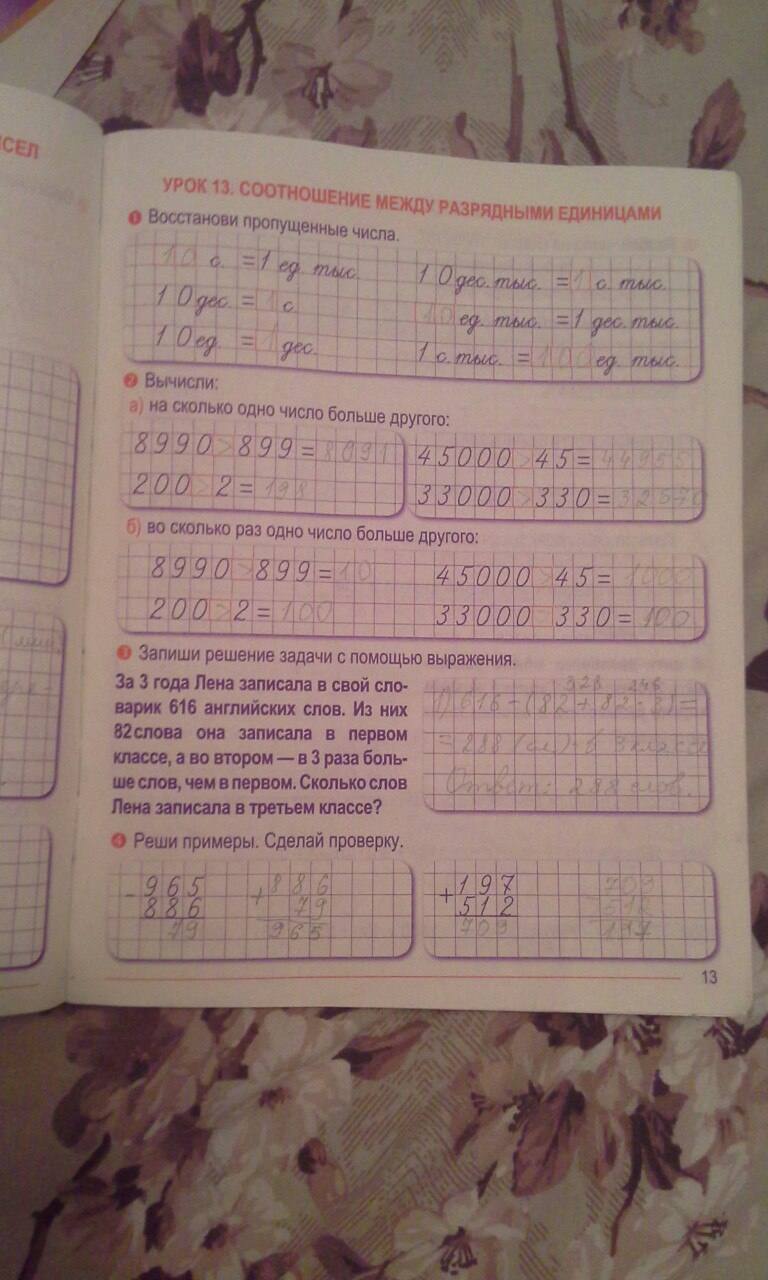 СЕЛ
УРОК 13. СООТНОШЕНИЕ МЕЖДУ РАЗРЯДНЫМИ ЕДИНИЦАМИ
1 Восстанови пропущенные числа.
10 с. = 1 ед. тыс.
10 дес. тыс. = 1 с. тыс.
10 дес. = 1 с.
10 ед. тыс. = 1 дес. тыс.
10 ед. = 1 дес.
1 с. тыс. = 100 ед. тыс.
2 Вычисли:
а) на сколько одно число больше другого:
8990 > 899 = 8091
45000 > 45 = 44955
200 > 2 = 198
33000 > 330 = 32670
б) во сколько раз одно число больше другого:
8990 > 899 = 10
45000 > 45 = 1000
200 > 2 = 100
33000 > 330 = 100
3 Запиши решение задачи с помощью выражения.
За 3 года Лена записала в свой сло-
варик 616 английских слов. Из них
82 слова она записала в первом
классе, а во втором — в 3 раза боль-
ше слов, чем в первом. Сколько слов
Лена записала в третьем классе?
328 246
1) 616 - (82 + 82 · 3) =
= 288 (сл) - в 3 классе
Ответ: 288 слов.
4 Реши примеры. Сделай проверку.
- 965
886
79
+ 886
79
965
+ 197
512
709
709
- 512
197
13